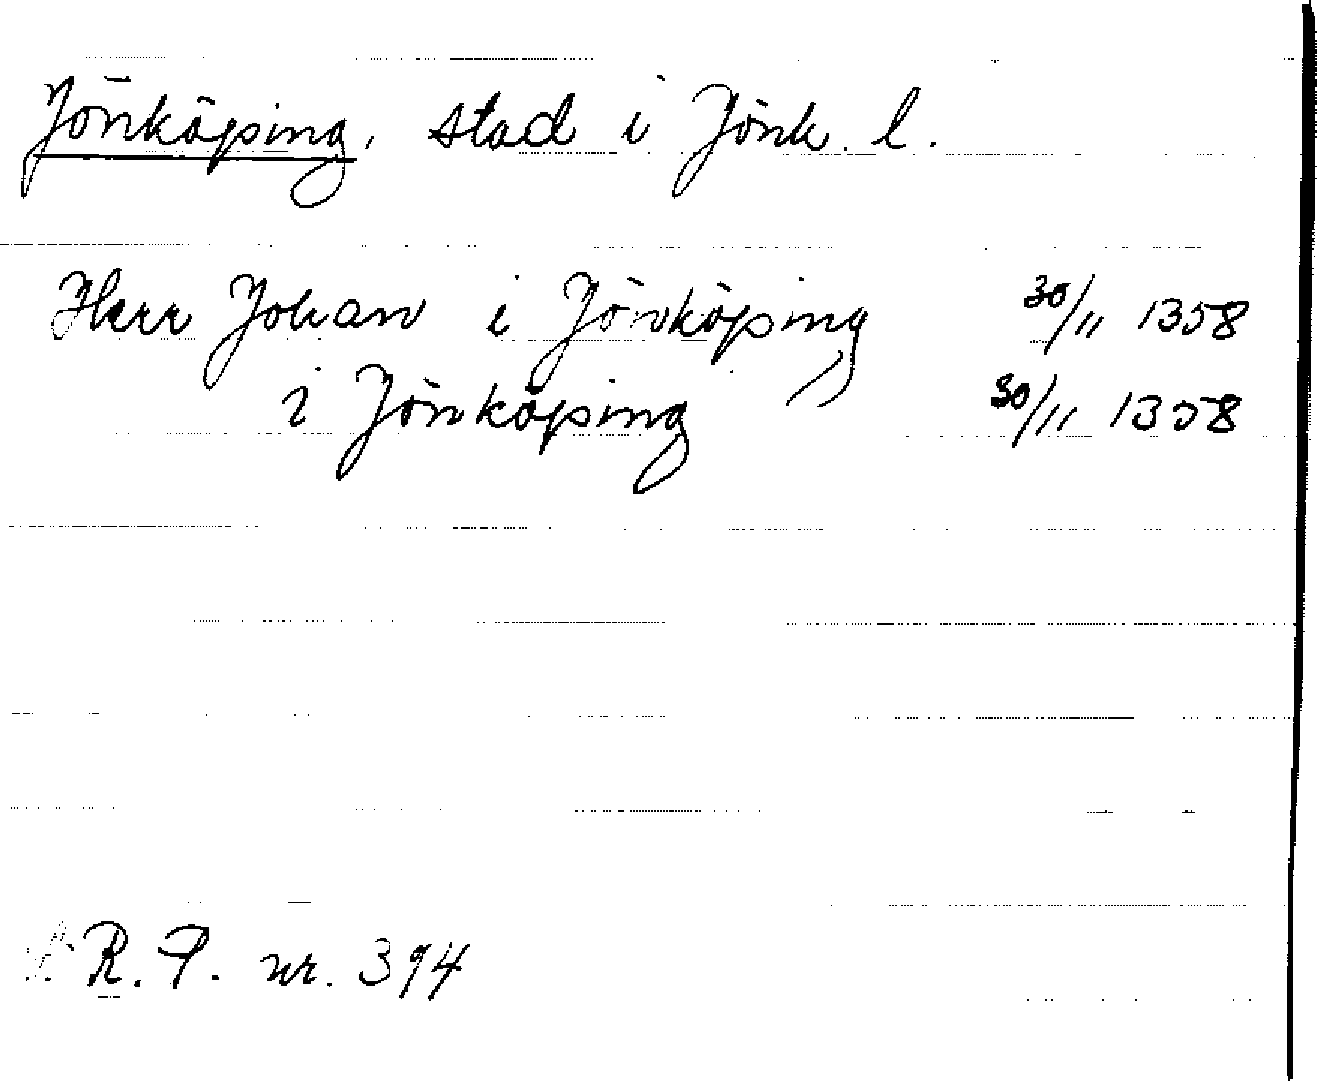 Jönköping, stad i Jönk. l.
Herr Johan i Jönköping 30/11 1358
i Jönköping 30/11 1358
R. P. nr. 394